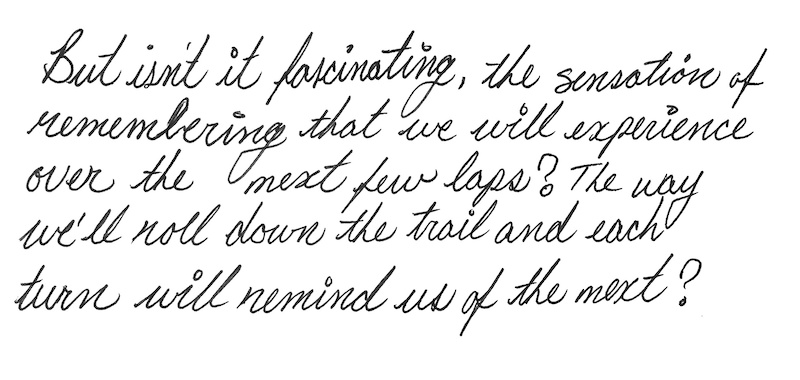 But isn't it fascinating, the sensation of
remembering that we will experience
over the next few laps? The way
we'll roll down the trail and each
turn will remind us of the next?